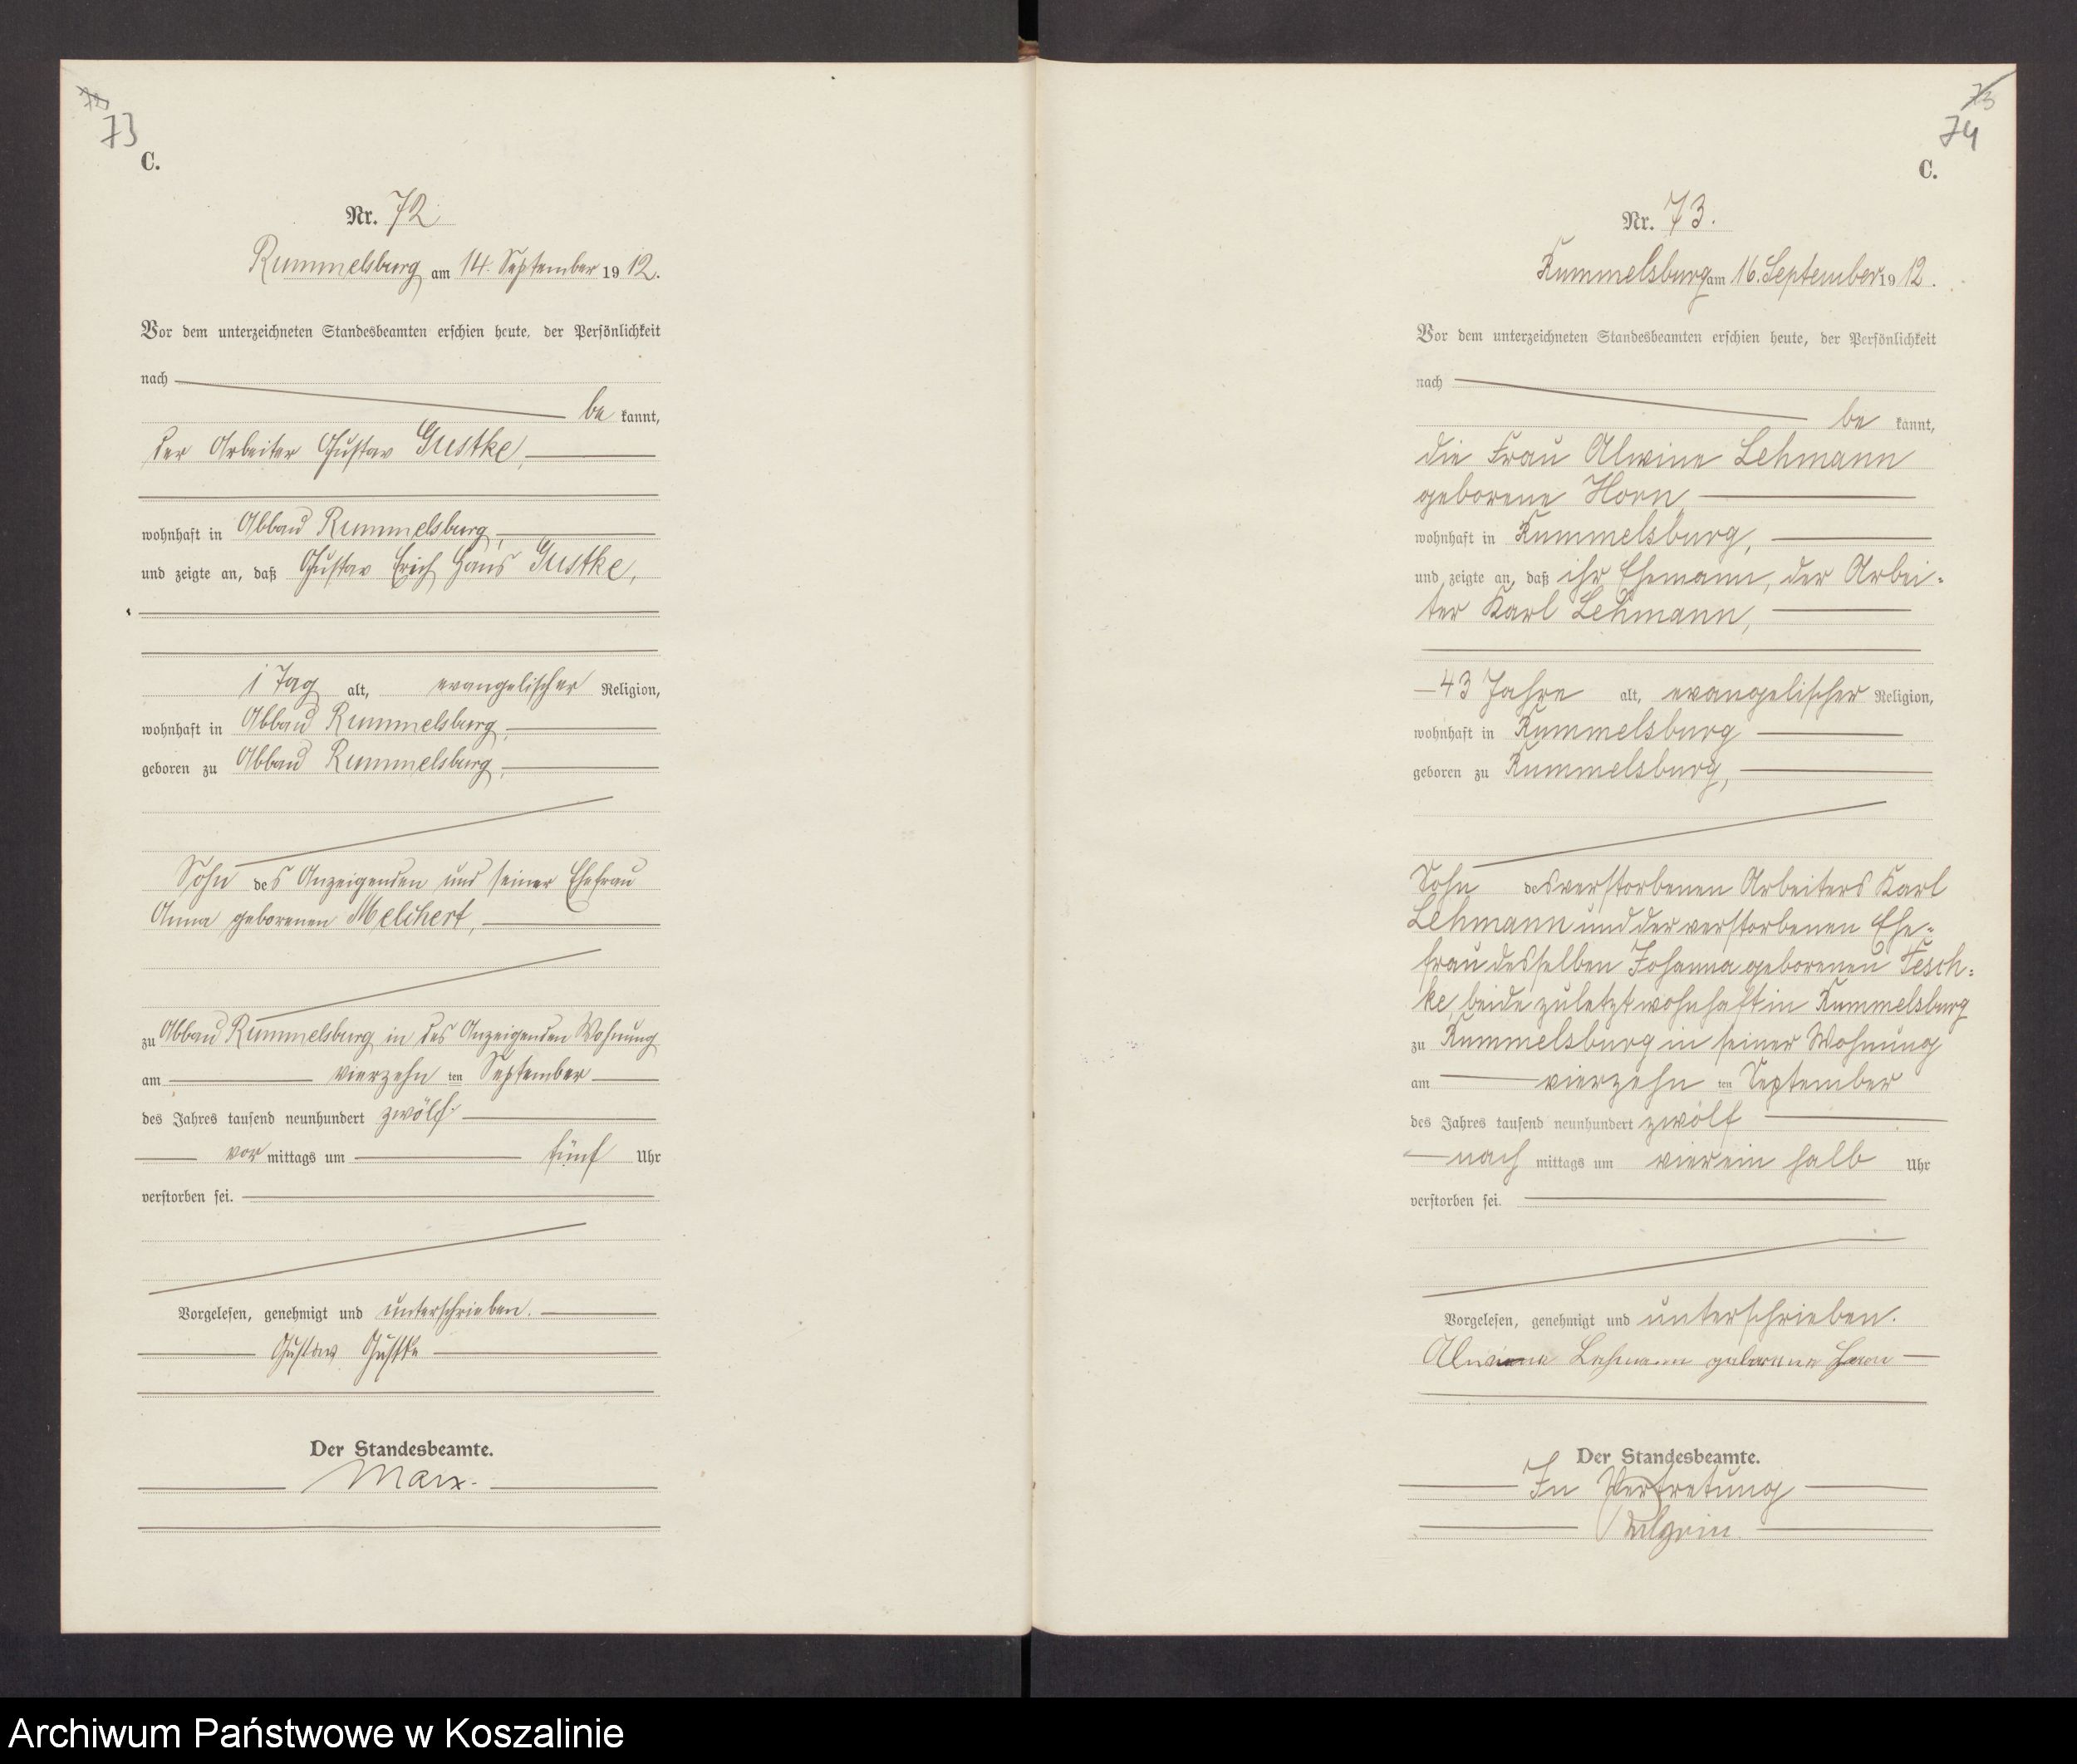 73
C.
Nr. 72
Rummelsburg am 14. September 1912.
Vor dem unterzeichneten Standesbeamten erschien heute, der Persönlichkeit
nach
be kannt,
der Arbeiter Gustav Gustke,
wohnhaft in Abbau Rummelsburg,
und zeigte an, daß Gustav Erich Hans Gustke,
1 Tag alt, evangelischer Religion,
wohnhaft in Abbau Rummelsburg,
geboren zu Abbau Rummelsburg,
Sohn des Anzeigenden und seiner Ehefrau
Anna geborenen Melchert,
zu Abbau Rummelsburg in des Anzeigenden Wohnung
am vierzehn ten September
des Jahres tausend neunhundert zwölf
vor mittags um fünf Uhr
verstorben sei.
Vorgelesen, genehmigt und unterschrieben.
Gustav Gustke
Der Standesbeamte.
Marx.
73
74
C.
Nr. 73.
Rummelsburg am 16. September 1912.
Vor dem unterzeichneten Standesbeamten erschien heute, der Persönlichkeit
nach
be kannt,
die Frau Alwine Lehmann
geborene Horn
wohnhaft in Rummelsburg,
und zeigte an, daß ihr Ehemann, der Arbei-
ter Karl Lehmann,
43 Jahre alt, evangelischer Religion,
wohnhaft in Rummelsburg
geboren zu Rummelsburg,
Sohn des verstorbenen Arbeiters Karl
Lehmann und der verstorbenen Ehe-
frau desselben Johanna geborenen Tesch-
ke, beide zuletzt wohnhaft in Rummelsburg
zu Rummelsburg in seiner Wohnung
am vierzehn ten September
des Jahres tausend neunhundert zwölf
nach mittags um vierein halb Uhr
verstorben sei.
Vorgelesen, genehmigt und unterschrieben.
Alwiene Lehmann geborene Horn
Der Standesbeamte.
In Vertretung
Archiwum Państwowe w Koszalinie